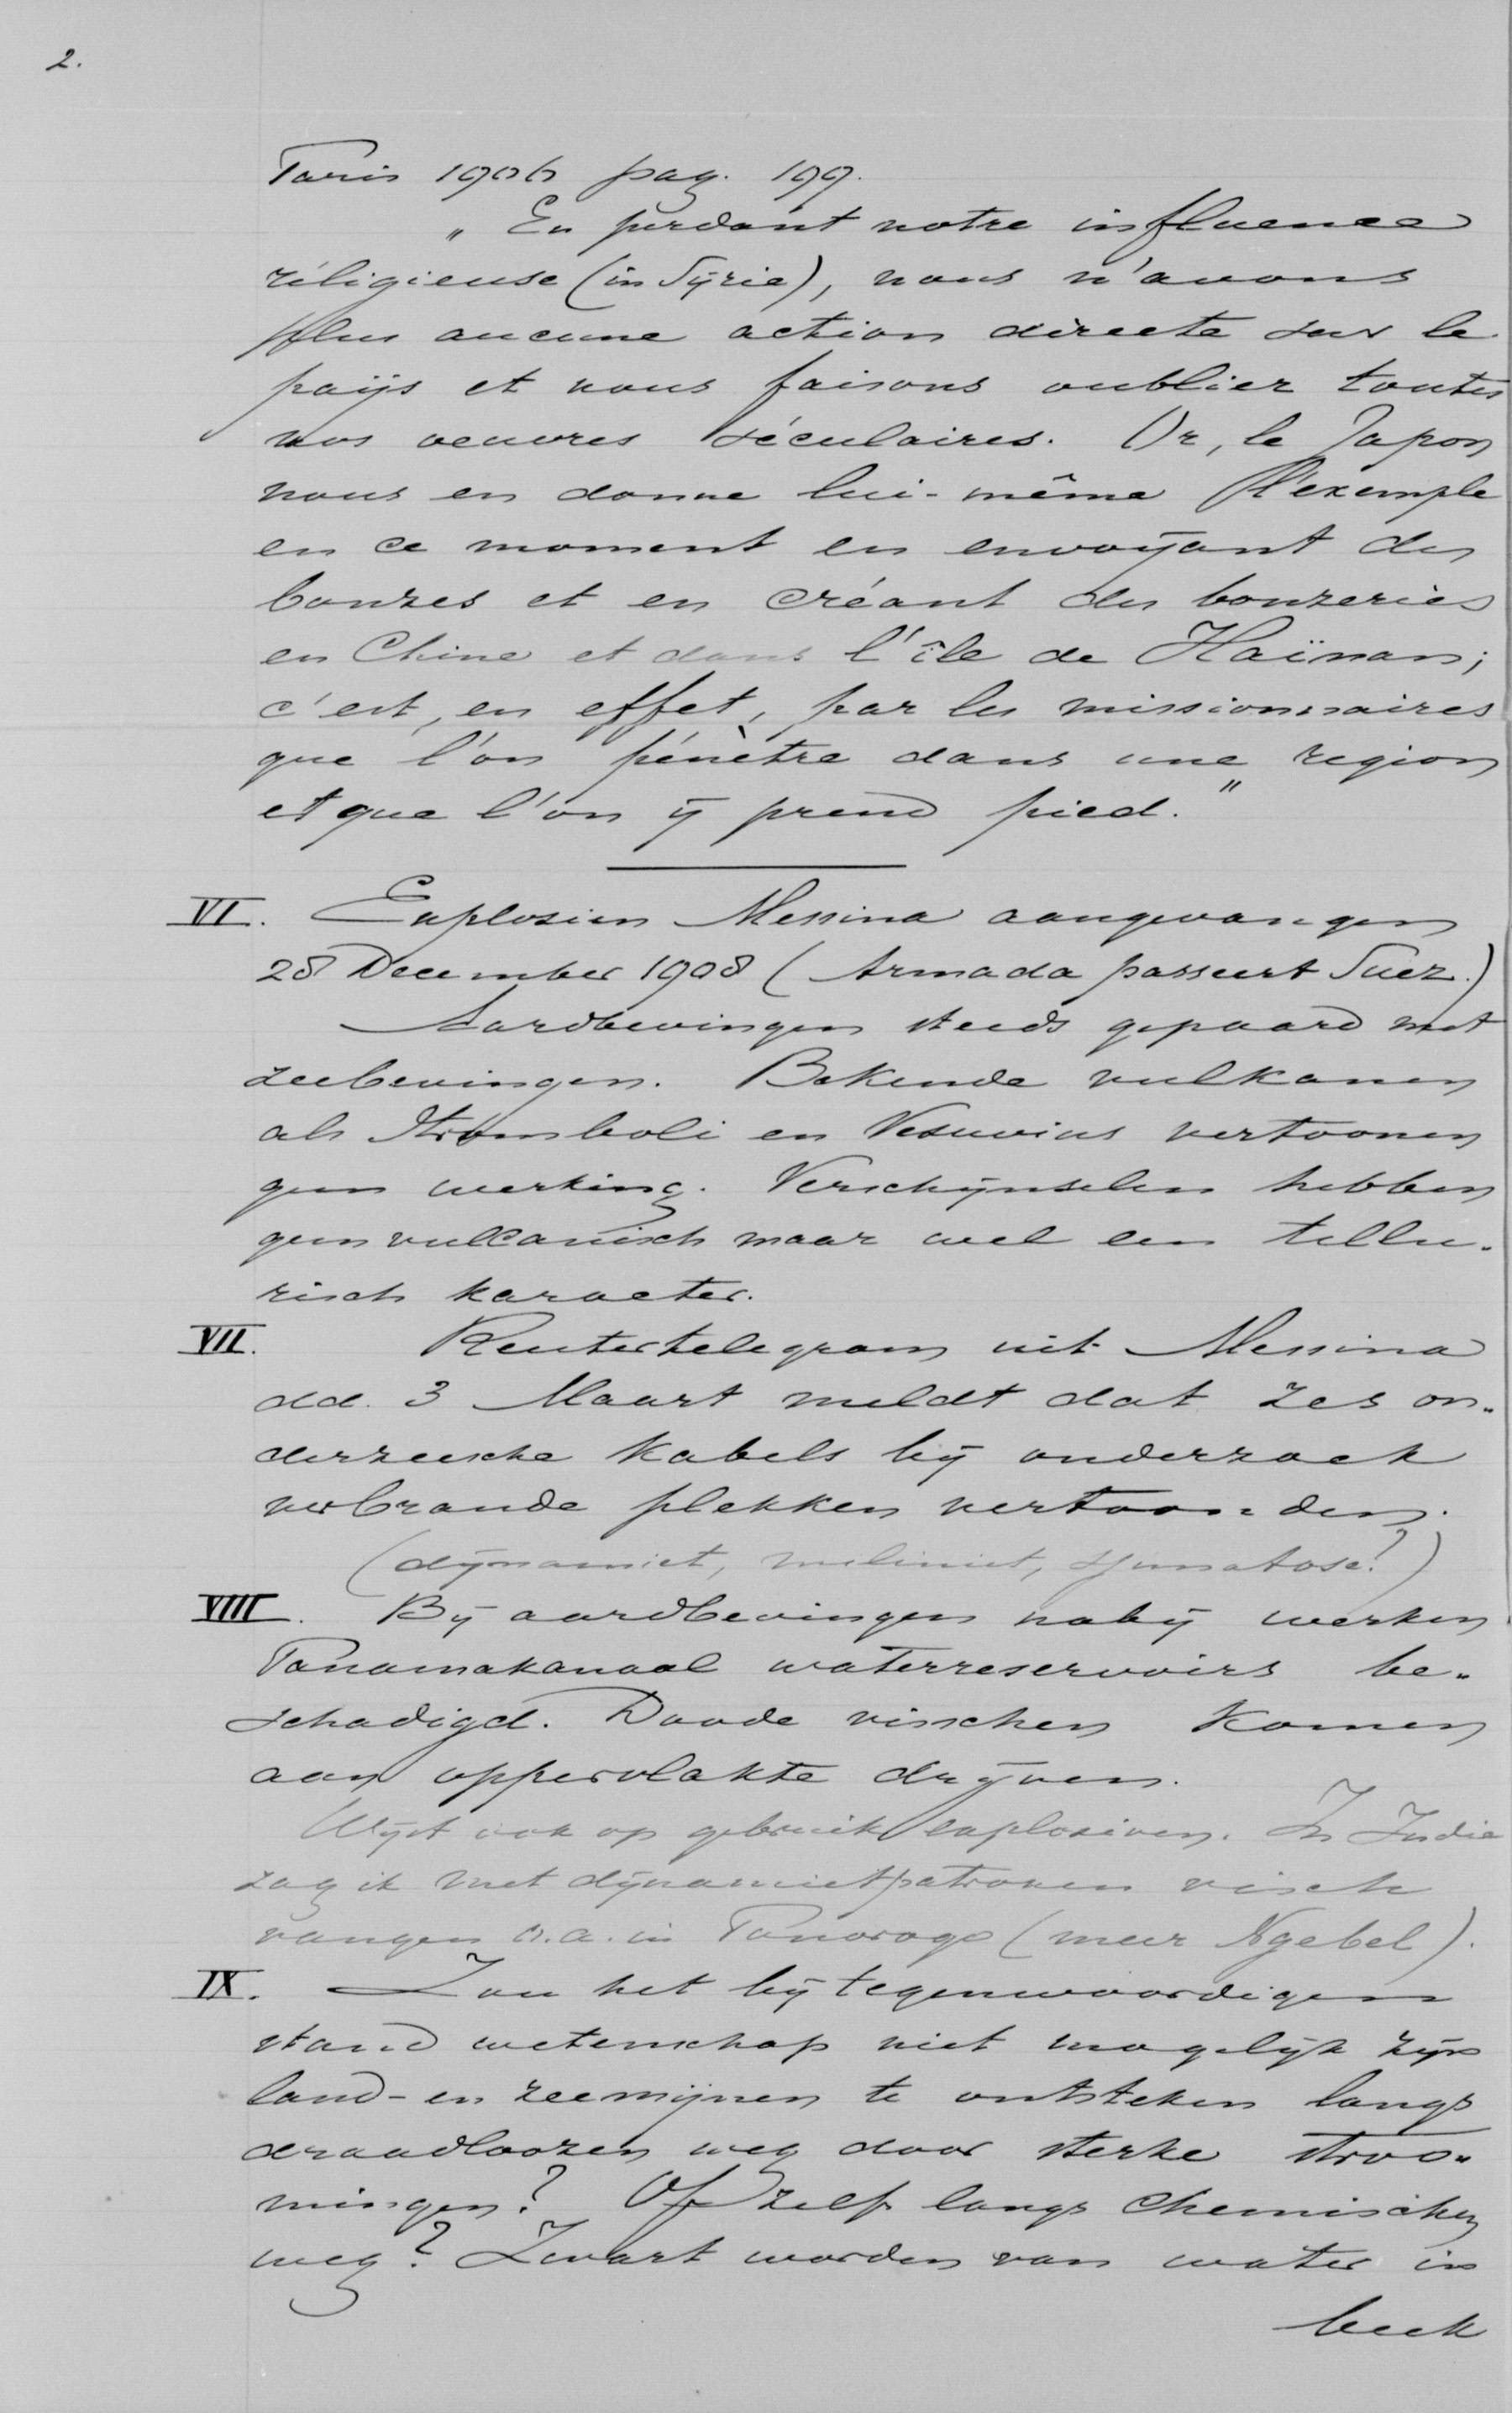 2.
Paris 1906 pag. 199.
„ En perdant notre influence
réligieuse (in Syrie), nous n'avons
plus aucune action directe sur le
pays et nous faisons oublier toutes
nos oeuvres séculaires. Or, le Japon
nous en donne lui-même l'exemple
en ce moment en envoyant des
bonzes et en créant des bonzeries
en Chine et dans l'île de Haïnan;
c'est, en effet, par les missionnaires
que l'on pénètre dans une region
et que l'on y prend pied."
VI. Explosien Messina aangevangen
28 December 1908 (Armada passeert Suez.)
Aardbevingen steeds gepaard met
zeebevingen. Bekende vulkanen
als Stromboli en Vesuvius vertoonen
geen werking. Verschijnselen hebben
geen vulcanisch maar wel een tellu-
risch karacter.
VII. Reutertelegram uit Messina
dd. 3 Maart meldt dat zes on-
derzeesche kabels bij onderzoek
verbrande plekken vertoonden.
(dynamiet, meliniet, ?)
VIII. Bij aardbevingen nabij werken
Panamakanaal waterreservoirs be-
schadigd. Doode visschen komen
aan oppervlakte drijven.
Wijst ook op gebruik explosieven. In Indie
zag ik met dynamietpatronen visch
vangen o.a. in Ponorogo (meer Ngebel).
IX. Zou het bij tegenwoordigen
stand wetenschap niet mogelijk zijn
land- en zeemijnen te ontsteken langs
draadloozen weg door sterke stroo-
mingen? Of zelf langs chemischen
weg? Zwart worden van water in
beek